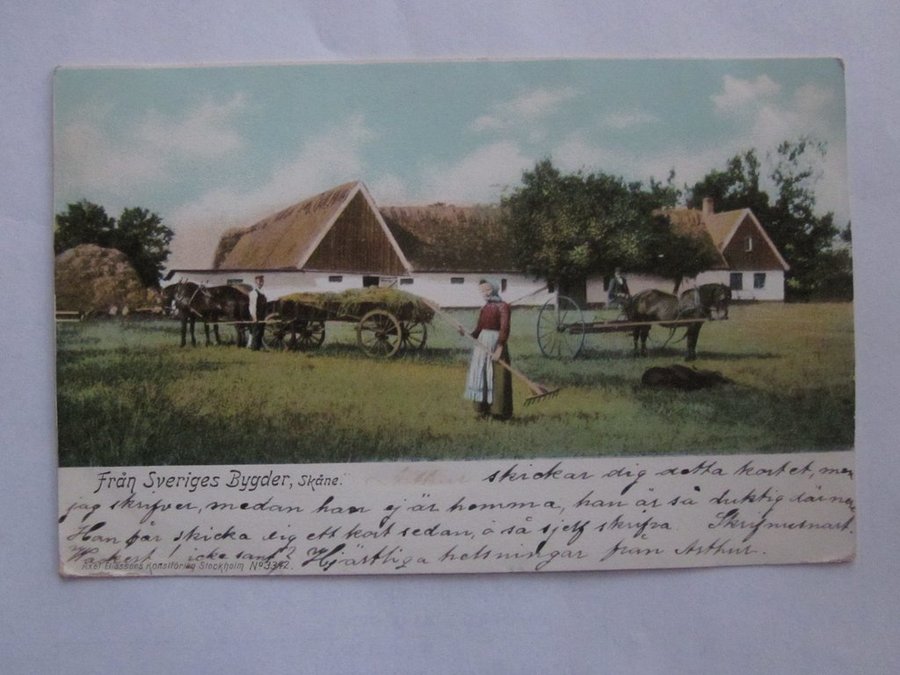 Från Sveriges Bygder, Skåne.
skickar dig detta kortet, men
jag skrifver, medan han ej är hemma, han är så duktig
Han får skicka dig ett kort sedan, o så sjelf skrifva. Skrif snart
Vackert! icke sant? Hjärtliga helsningar från Arthur.
Axel Eliassons Konstförlag Stockholm Nº 3342.